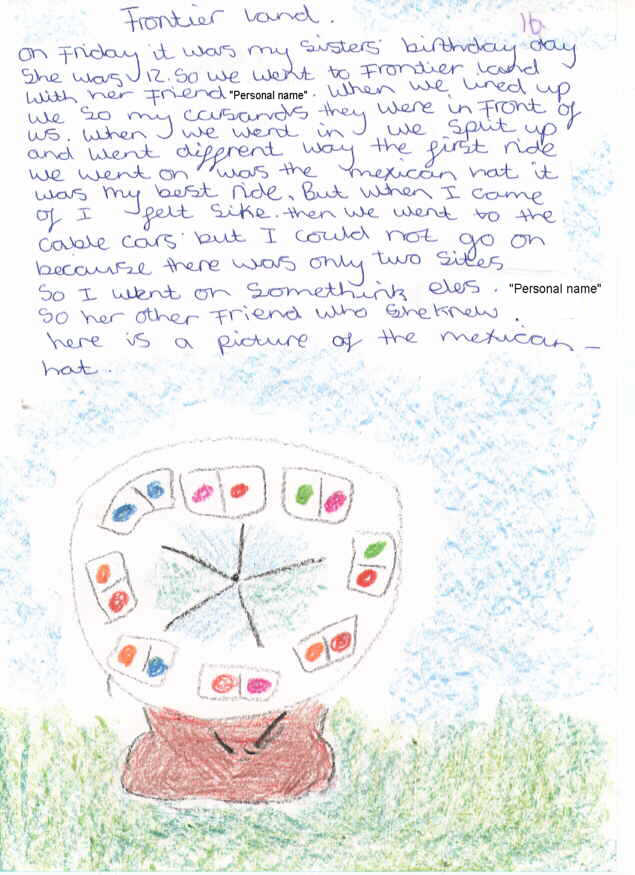 Frontier Land.
16
on Friday it was my sisters birthday day
She was 12. So we went to Frontier Land
with her Friend "Personal name". When we lined up
we so my cousands they were in Front of
us. when we went in we split up
and went different way the first ride
we went on was the mexican hat it
was my best ride. But when I came
of I felt sike. then we went to the
cable cars but I could not go on
because there was only two sites
So I went on somethink eles. "Personal name"
So her other Friend who she knew.
here is a picture of the mexican-
hat.